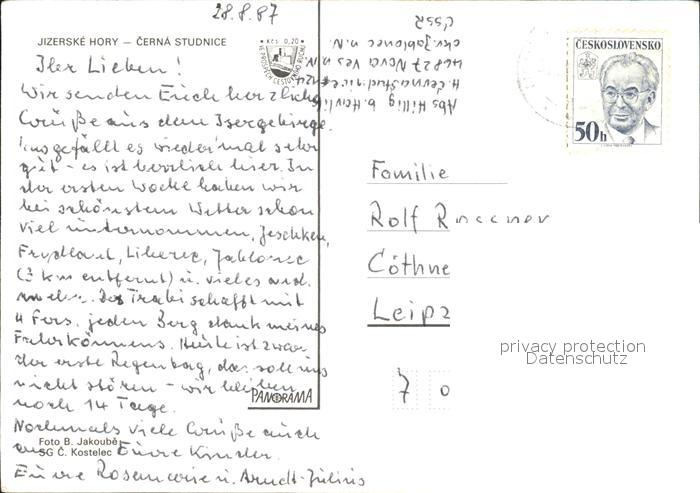 28.8.87
JIZERSKÉ HORY – ČERNÁ STUDNICE
Kčs 0,20
Ihr Lieben!
Wir senden Euch herzliche
Grüße aus dem Isergebirge.
Uns gefällt es wieder mal sehr
gut - es ist herrlich hier. In
der ersten Woche haben wir
bei schönstem Wetter schon
viel unternommen, Jeschken,
Frydland, Liberec, Jablonec
(3 km entfernt) u. vieles and.
mehr. Der Trabi schafft mit
4 Pers. jeden Berg dank meines
Fahrkönnens. Heute ist zwar
der erste Regentag, das soll uns
nicht stören - wir bleiben
noch 14 Tage.
Nochmals viele Grüße auch
an Eure Kinder.
Eure Rosemarie u. Arndt-Julius
PANORAMA
Foto B. Jakoubě
SG Č. Kostelec
Abs. Hillig b. Havlik
H. Černá Studnice
46827 Nova Ves n. N.
okr. Jablonec n. N.
ČSSR
ČESKOSLOVENSKO
50h
Familie
Rolf
Cöthne
Leipz
7 0
privacy protection
Datenschutz